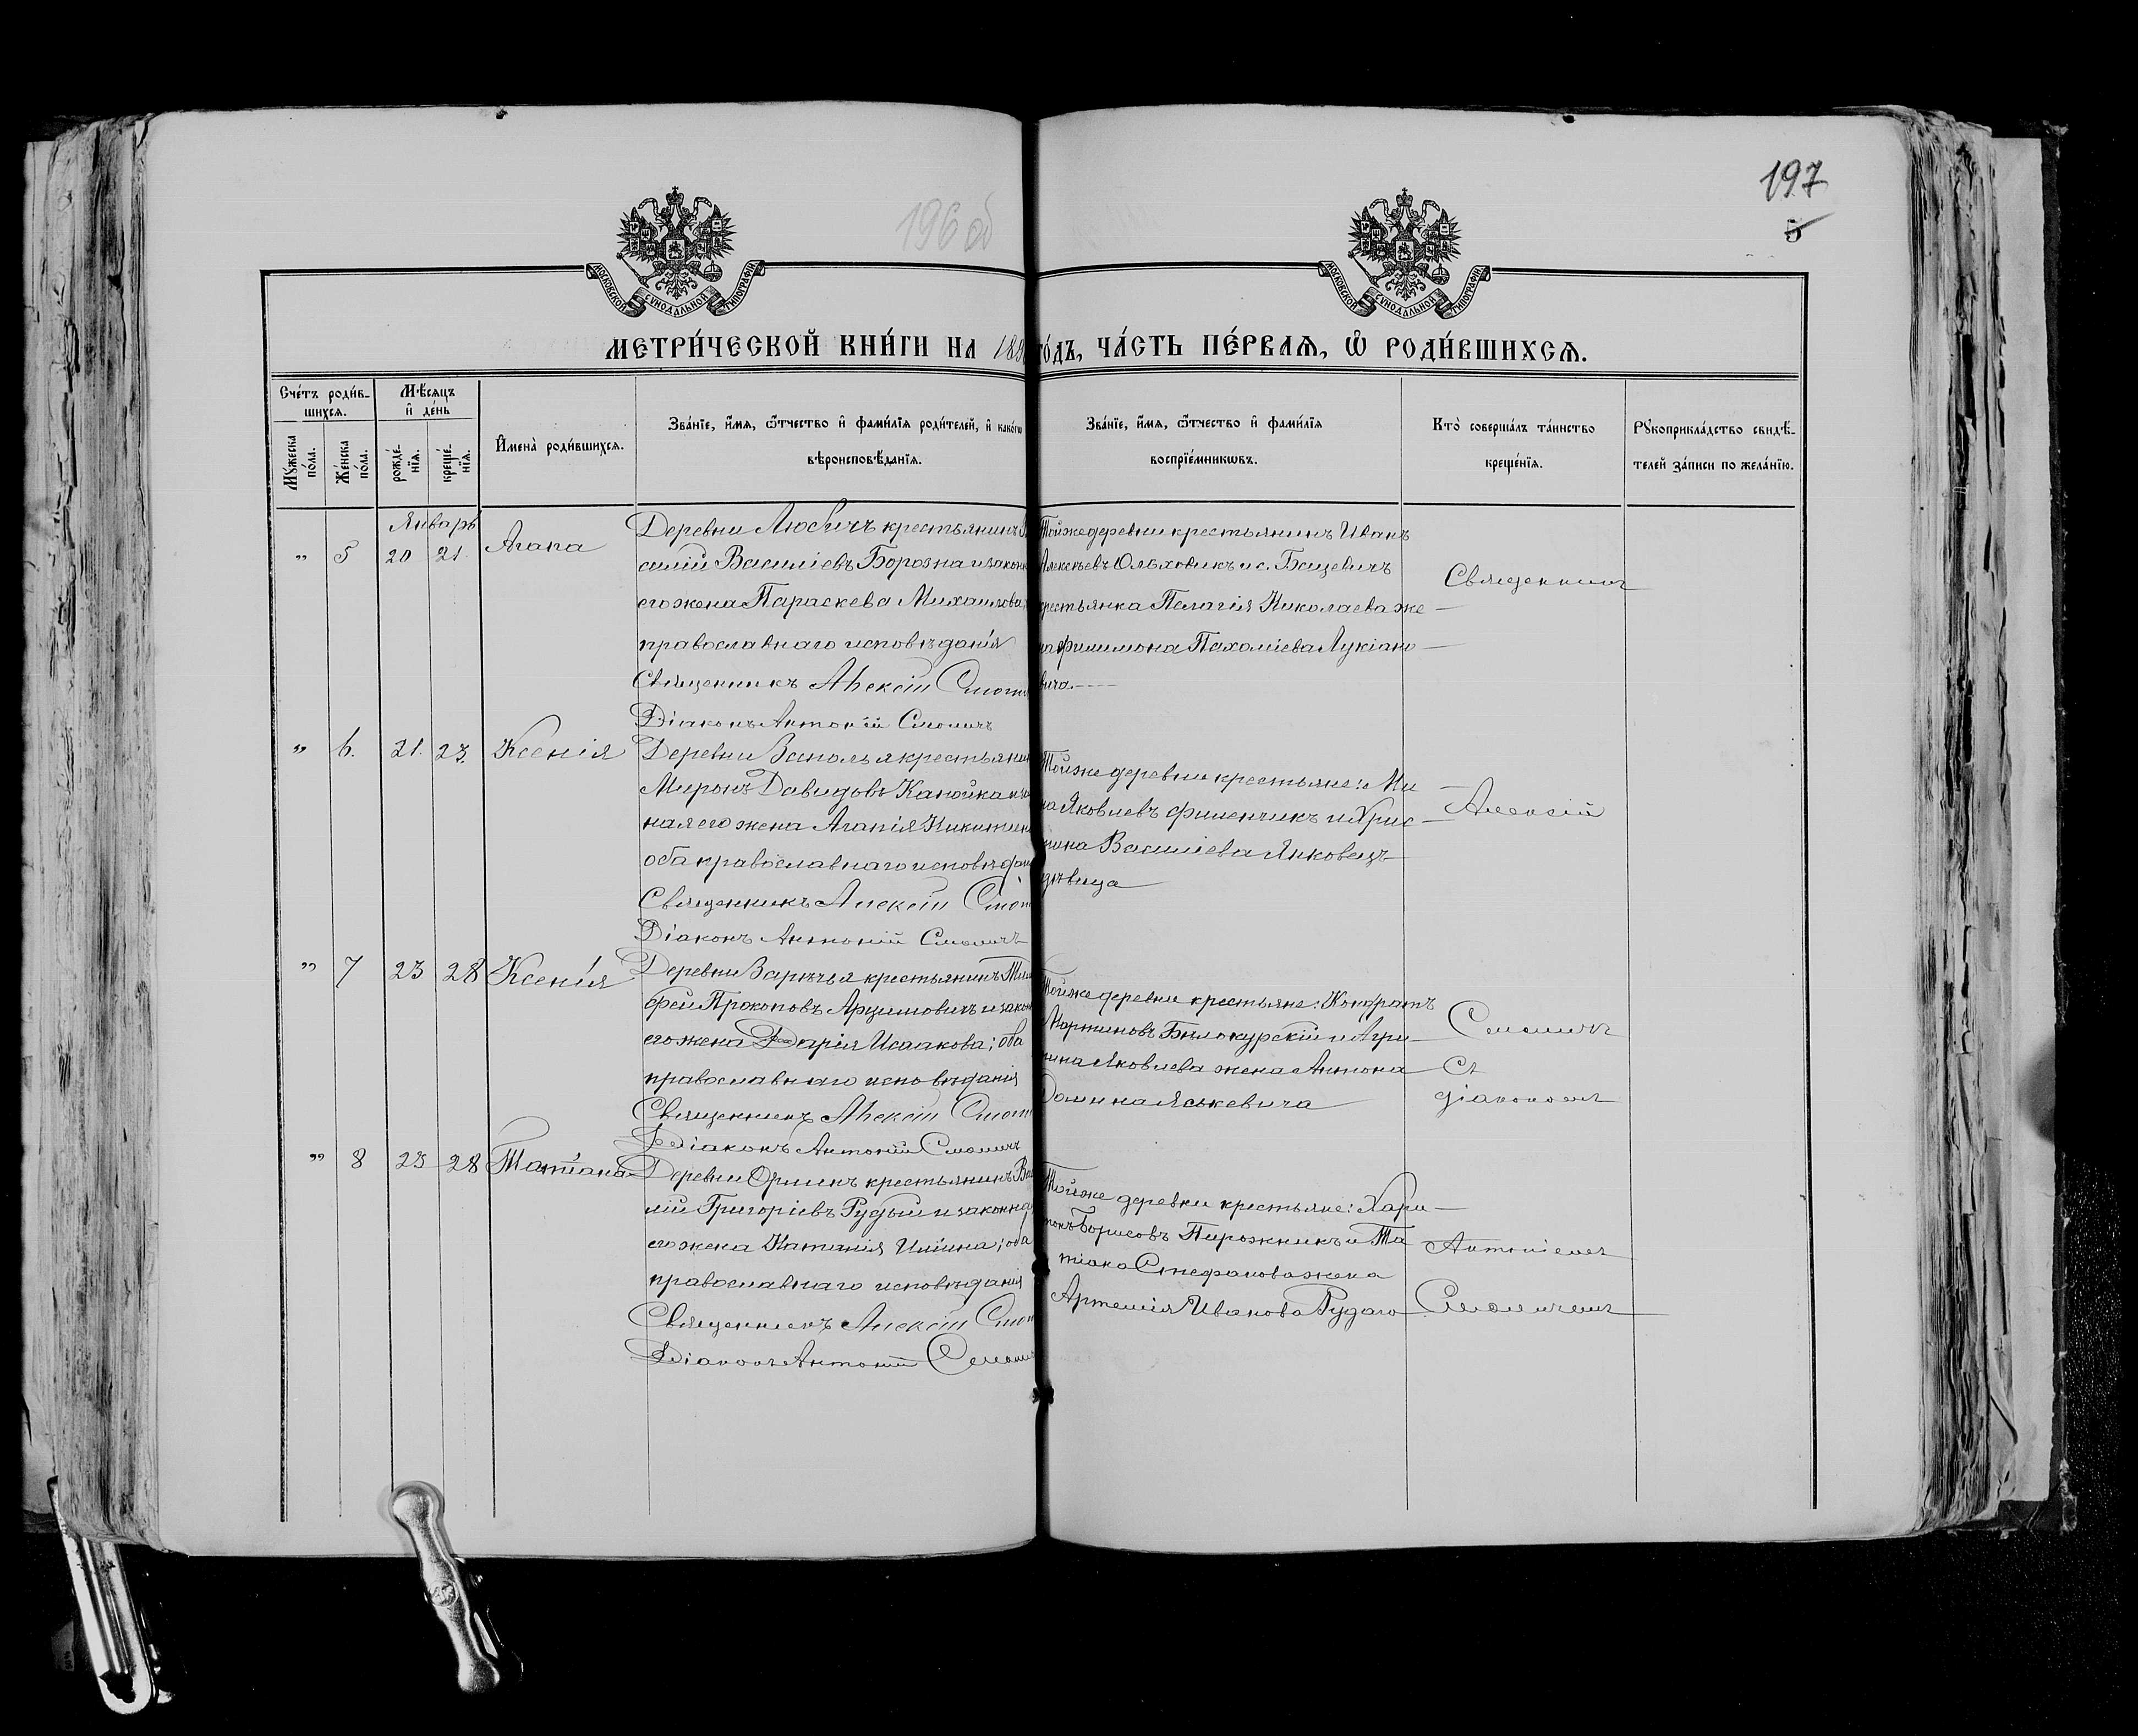 197
5
196 об
МОСКОВСКОЙ СѴНОДАЛЬНОЙ ТИПОГРАФІИ
МОСКОВСКОЙ СѴНОДАЛЬНОЙ ТИПОГРАФІИ
МЕТРИ́ЧЕСКОЙ КНИ́ГИ НА 189 ГО́ДЪ, ЧА́СТЬ ПЕ́РВАЯ, Ѡ РОДИ́ВШИХСЯ.
Сче́тъ роди́в-
шихся.
Мѣ́сяцъ
и҆ де́нь
Мꙋ́жеска
по́ла.
Же́нска
по́ла.
рожде́-
нїя.
креще́-
нїя.
И҆мена̀ роди́вшихся.
Зва́нїе, и҆́мя, ѻ҆́тчество и҆ фами́лїя роди́телей, и҆ како́гѡ
вѣроисповѣ́данїя.
Зва́нїе, и҆́мя, ѻ҆́тчество и҆ фами́лїя
воспрїе́мникѡвъ.
Кто̀ соверша́лъ та́инство
креще́нїя.
Рꙋкоприкла́дство свидѣ́-
телей за́писи по жела́нїю.
Январь
" 5 20 21. Агапа
Деревни Любичъ крестьянинъ
силій Василіевъ Борозна и законн
его жена Параскева Михаилова;
православнаго исповѣданія
Священникъ Алексій Смол
Діаконъ Антоній Смоличъ
Тойже деревни крестьянинъ Иванъ
Алексѣевъ Ольховикъ и с. Бацевичъ
крестьянка Пелагія Николаева же-
на Филимона Пахоміева Лукіано-
вича.
Священникъ
" 6. 21. 23. Ксенія
Деревни Заполья крестьянин
Миронъ Давидовъ Канойка и за
ная его жена Агапія Никитин
оба православнаго исповѣдан
Священникъ Алексій Смол
Діаконъ Антоній Смоличъ
Тойже деревни крестьяне: Ми-
на Яковлевъ Филенчикъ и Хрис-
тина Василіева Янковецъ
дѣвица
Алексій
" 7 23 28 Ксенія
Деревни Зарѣчья крестьянинъ Тим
офей Прокоповъ Арцимовичъ и закон
его жена Дарія Исаакова; оба
православнаго исповѣданія
Священникъ Алексій Смол
Діаконъ Антоній Смоличъ
Тойже деревни крестьяне: Кондратъ
Мартиновъ Бѣлокурскій и Агри-
пина Яковлева жена Антона
Доминаяськевича
Смоличъ
Съ
діакономъ
" 8 23 28 Татіана
Деревни Орлинъ крестьянинъ Ва
лій Григоріевъ Рудый и законна
его жена Наталія Иліина; оба
православнаго исповѣданія
Священникъ Алексій Смол
Діаконъ Антоній Смолич
Тойже деревни крестьяне: Хари-
тонъ Борисовъ Пирожникъ и Та
тіана Стефанова жена
Артемія Иванова Рудаго
Антоніемъ
Смоличемъ